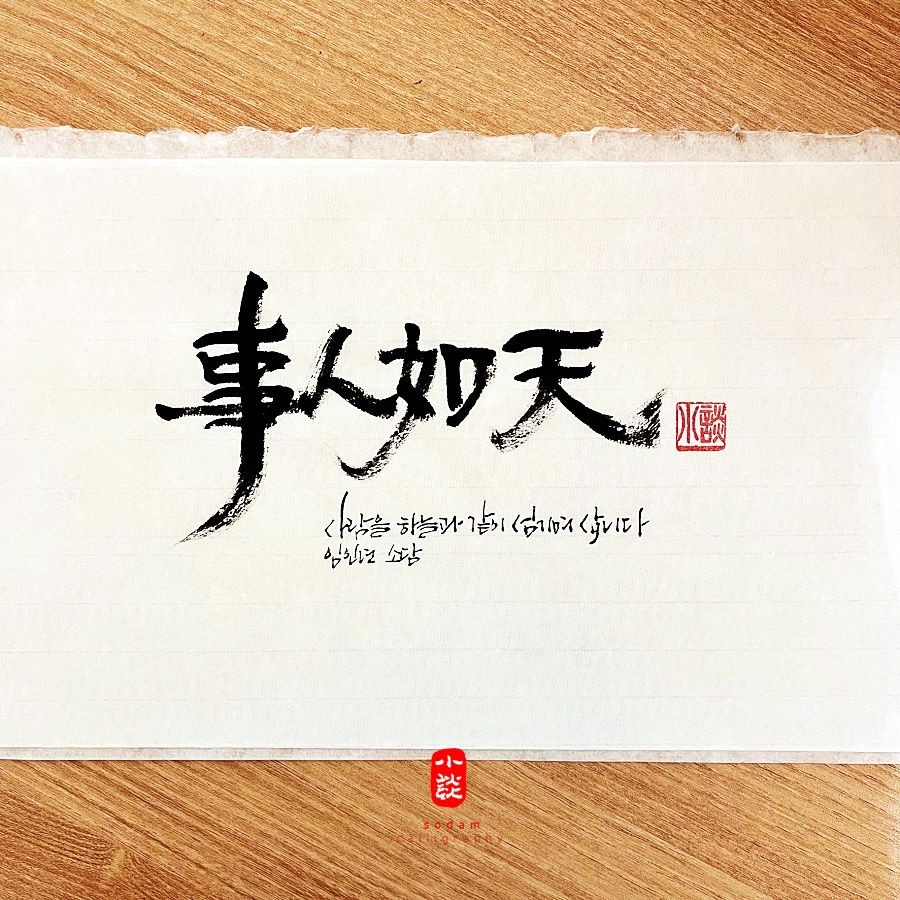 事人如天
小談
사람을 하늘과 같이 섬기며 삽니다
임인년 소담
小談
sodam
calligraphy